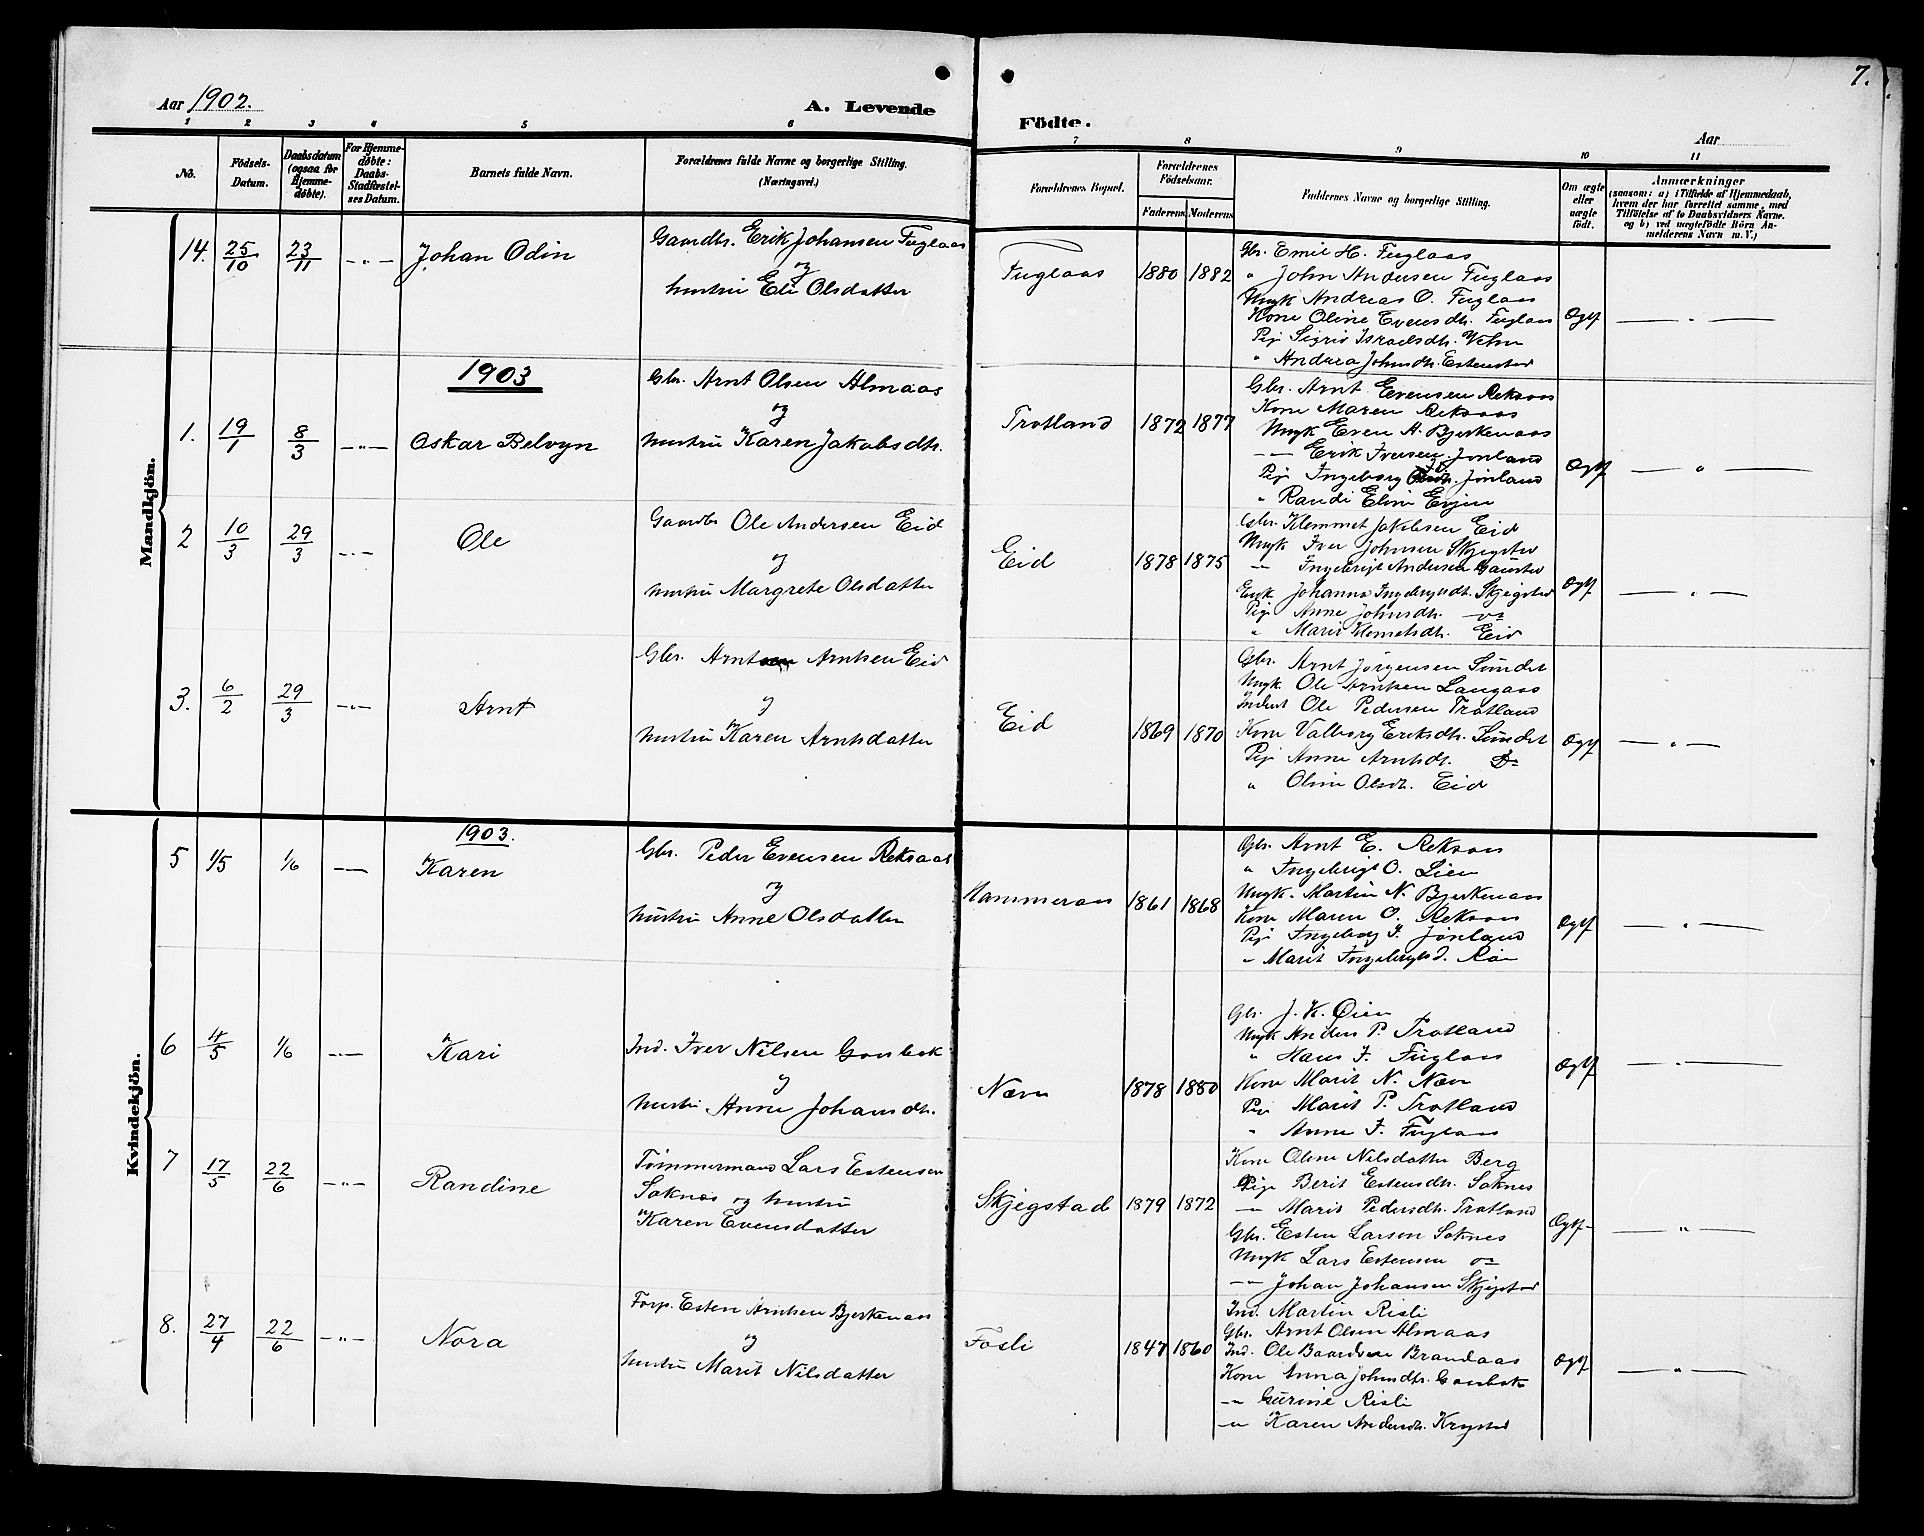 Aar 1902.
A. Levende Födte.
Aar
7.
1 2 3 4 5 6 7 8 9 10 11
No.
Födsels-Datum.
Daabsdatum (ogsaa for Hjemme-døbte).
For Hjemme-døbte: Daabs-Stadfæstel-ses Datum.
Barnets fulde Navn.
Forældrenes fulde Navne og borgerlige Stilling. (Næringsvei.)
Forældrenes Bopæl.
Forældrenes Födselsaar.
Faderens Moderens
Faddernes Navne og borgerlige Stilling.
Om ægte eller uægte født.
Anmærkninger
(saasom: a) i Tilfælde af Hjemmedaab, hvem der har forrettet samme, med Tilføielse af to Daabsvidners Navne. og b) ved uægtefödte Börn An-melderens Navn m. V.)
Mandkjön.
14. 25/10 23/11 -„- Johan Odin
Gaardbr. Erik Johansen Fuglaas
og
hustru Eli Olsdatter
Fuglaas 1880 1882
Gbr. Emil H. Fuglaas
„ John Andersen Fuglaas
Ungk Andreas O. Fuglaas
Kone Oline Evensdtr. Fuglaas
Pige Sigrid Israelsdtr.
„ Andrea Johnsdtr. Estenstad
Ægtf — „ —
1903
1. 19/1 8/3 -„- Oskar Belvyn
Gbr. Arnt Olsen Almaas
og
hustru Karen Jakobsdtr.
Trotland 1872 1877
Gbr. Arnt Evensen Reksaas
Kone Maren Reksaas
Ungk Even A. Bjerkenaas
-„- Erik Iversen Jonland
Pige Ingeborg Jönland
„ Randi Eline
Ægtf — „ —
2 10/3 29/3 -„- Ole
Gaardbr Ole Andersen Eid
og
hustru Margrete Olsdatter
Eid 1878 1875
Gbr. Klemmet Jakobsen Eid
Ungk Iver Johnsen Skjegstad
-„- Ingebrigt Andersen
Enk Johanna Ingebrigtsdtr. Skjegstad
Pige Anne Johnsdtr. do
„ Marit Klemetsdtr. Eid
Ægtf — „ —
3. 6/2 29/3 -„- Arnt
Gbr. Arnt Arntsen Eid
og
hustru Karen Arntsdatter
Eid 1869 1870
Gbr. Arnt Jörgensen Sundet
Ungk. Ole Arntsen Langaas
Inderst Ole Pedersen Trotland
Kone Valborg Eriksdtr. Sundet
Pige Anne Arntsdtr. Do
„ Oline Olsdtr. Eid
Ægtf — „ —
Kvindekjön.
1903.
5 1/5 1/6 -„- Karen
Gbr. Peder Evensen Reksaas
og
hustru Anne Olsdatter
Hammeraas 1861 1868
Gbr. Arnt E. Reksaas
„ Ingebrigt O. Lien
Ungk. Martin N. Bjerkenaas
Kone Maren O. Reksaas
Pige Ingeborg I. Jønland
„ Marit Ingebrigtsd.
Ægtf — „ —
6 4/5 1/6 -„- Kari
Ind. Iver Nilsen Gaabak
og
hustru Anne Johansdtr.
Næve 1878 1880
Gbr. J. K. Øien
Ungk Anders P. Trotland
„ Hans J. Fuglaas
Kone Marit N. Næve
Pige Marit P. Trotland
„ Anne J. Fuglaas
Ægtf — „ —
7 17/5 22/6 -„- Randine
Tømmermand Lars Estensen
Soknes og hustru
Karen Evensdatter
Skjegstad 1879 1872
Kone Oline Nilsdatter Berg
Pige Berit Estensdtr. Soknes
-„- Marit Pedersdtr. Trotland
Gbr. Esten Larsen Soknes
Ungk Lars Estensen do
-„- Johan Johansen Skjegstad
Ægtf — „ —
8. 27/4 22/6 -„- Nora
Forp. Esten Arntsen Bjerkenaas
og
hustru Marit Nilsdatter
Fosli 1847 1860
Ind. Martin Risli
Gbr. Arnt Olsen Almaas
Ind. Ole Baardsen Brandaas
Kone Anna Johnsdtr. Gaabak
-„- Gurine Risli
-„- Karen Andersdtr. Krogstad
Ægtf — „ —